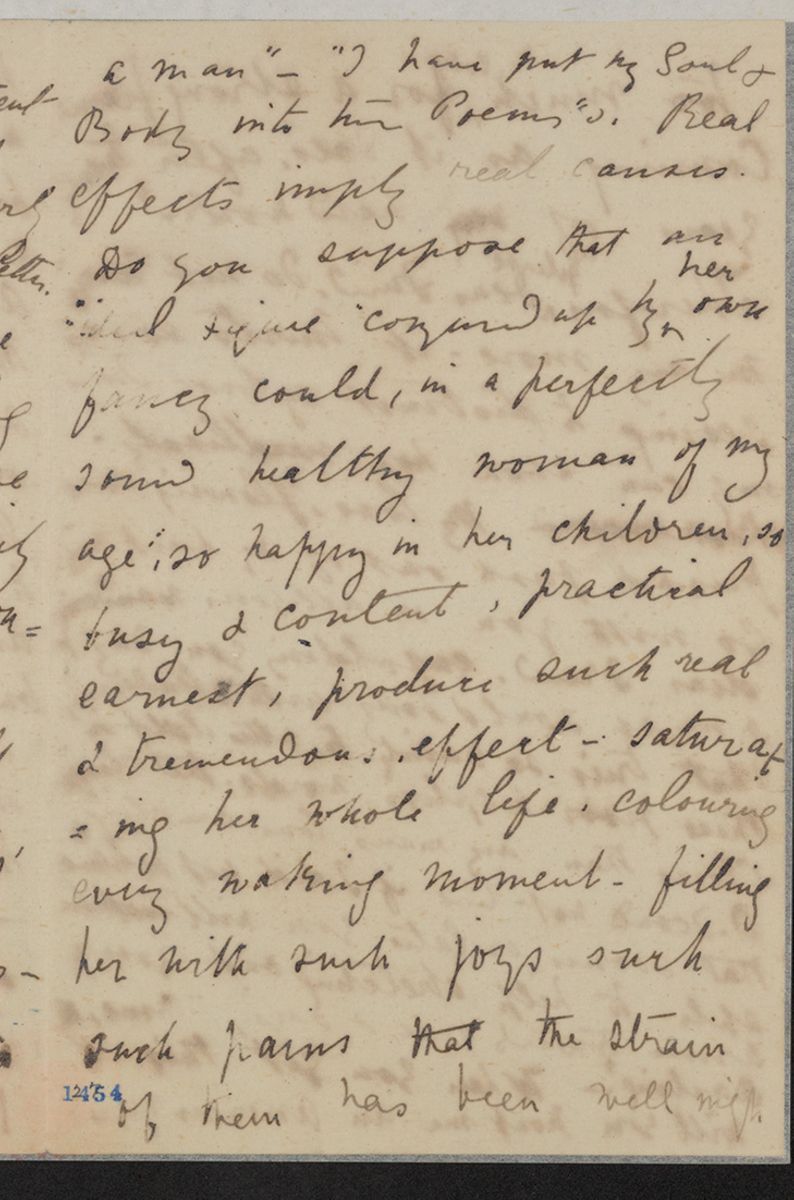 a man" – "I have put my Soul &
Body into thr Poems"s. Real
effects imply real causes.
Do you suppose that an
her
"ideal figure" conjured up by own
fancy could, in a perfectly
sound healthy woman of my
age, so happy in her children, so
busy & content, practical
earnest, produce such real
& tremendous effect – saturat
= ing her whole life. colouring
every waking moment – filling
her with such joys such
such pains that the strain
1245 4
of them has been well nigh